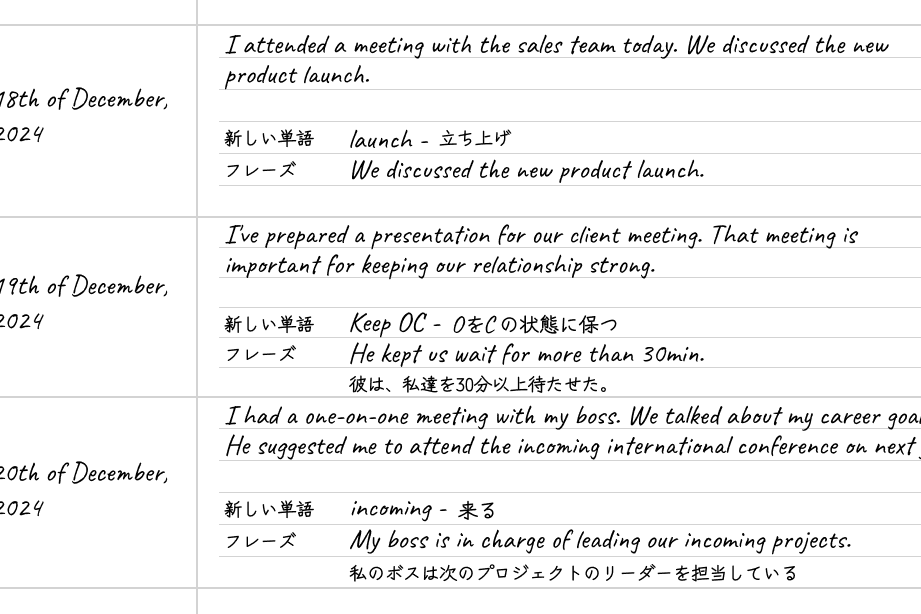 I attended a meeting with the sales team today. We discussed the new
product launch.
18th of December,
2024
新しい単語 launch - 立ち上げ
フレーズ We discussed the new product launch.
I've prepared a presentation for our client meeting. That meeting is
important for keeping our relationship strong.
19th of December,
2024
新しい単語 Keep OC - OをCの状態に保つ
フレーズ He kept us wait for more than 30min.
彼は、私達を30分以上待たせた。
I had a one-on-one meeting with my boss. We talked about my career
He suggested me to attend the incoming international conference on next
20th of December,
2024
新しい単語 incoming - 来る
フレーズ My boss is in charge of leading our incoming projects.
私のボスは次のプロジェクトのリーダーを担当している